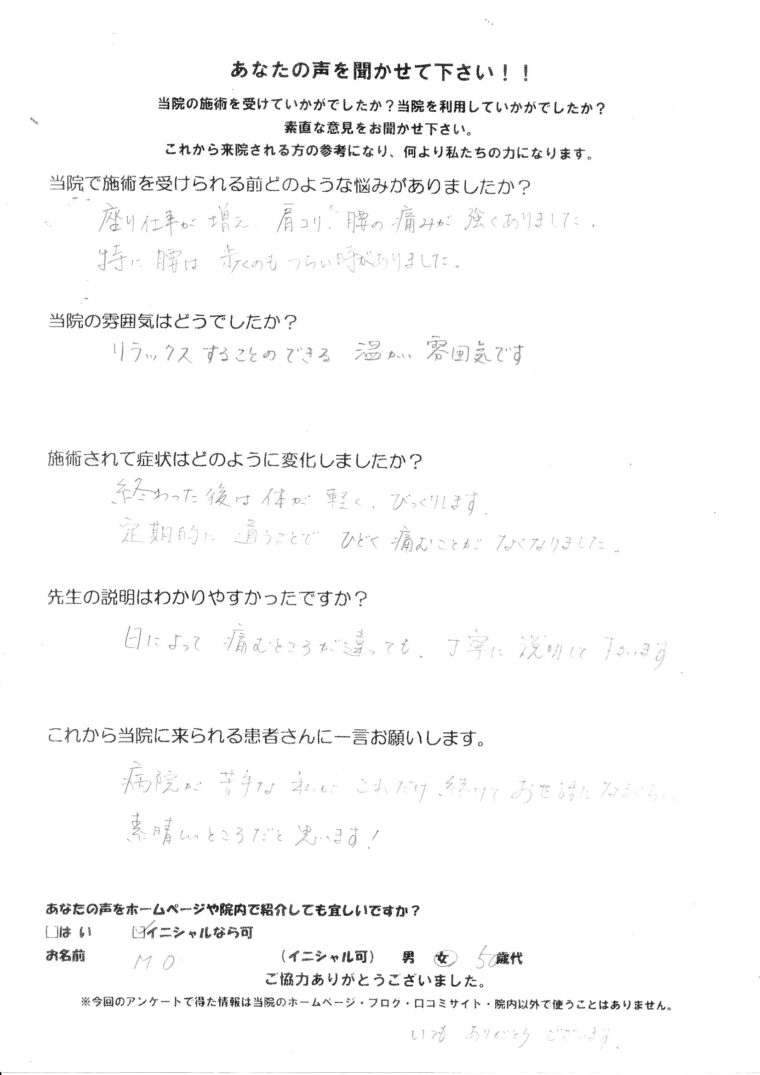 あなたの声を聞かせて下さい！！
当院の施術を受けていかがでしたか？当院を利用していかがでしたか？
素直な意見をお聞かせ下さい。
これから来院される方の参考になり、何より私たちの力になります。
当院で施術を受けられる前どのような悩みがありましたか？
座り仕事が増え 肩コリ、腰の痛みが強くありました。
特に腰は歩くのもつらい時がありました。
当院の雰囲気はどうでしたか？
リラックスすることのできる 温かい雰囲気です
施術されて症状はどのように変化しましたか？
終わった後は体が軽く、びっくりします。
定期的に通うことでひどく痛むことがなくなりました。
先生の説明はわかりやすかったですか？
日によって痛むところが違っても、丁寧に説明して下さいます
これから当院に来られる患者さんに一言お願いします。
病院が苦手な私が これだけ続けてお世話になるくらい
素晴しいところだと思います！
あなたの声をホームページや院内で紹介しても宜しいですか？
□はい ☑イニシャルなら可
お名前 M O （イニシャル可） 男 女 50歳代
ご協力ありがとうございました。
※今回のアンケートで得た情報は当院のホームページ・ブログ・口コミサイト・院内以外で使うことはありません。
いつも ありがとうございます。